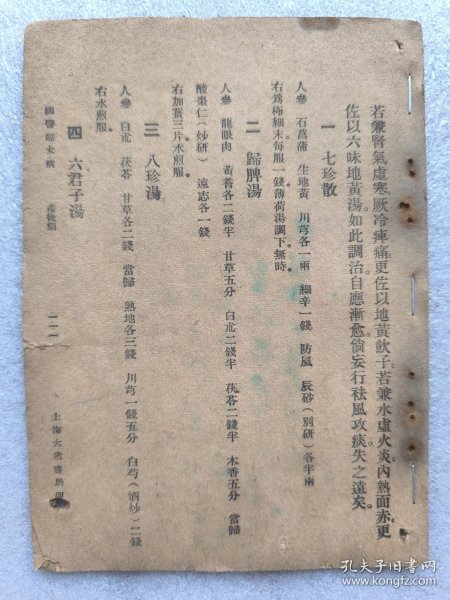 若兼腎氣虛寒。厥冷痺痛。更佐以地黃飲子。若兼水虛火炎。內熱面赤。更
佐以六味地黃湯。如此調治。自應漸愈。倘妄行祛風攻痰。失之遠矣。
一 七珍散
人參 石菖蒲 生地黃 川芎各一兩 細辛一錢 防風 辰砂(別研)各半兩
右爲極細末。每服一錢。薄荷湯調下。無時。
二 歸脾湯
人參 龍眼肉 黃耆各二錢半 甘草五分 白朮二錢半 茯苓二錢半 木香五分 當歸
酸棗仁(炒研) 遠志各一錢
右加薑三片。水煎服。
三 八珍湯
人參 白朮 茯苓 甘草各二錢 當歸 熟地各三錢 川芎一錢五分 白芍(酒炒)二錢
右水煎服。
四 六君子湯
國醫 產後 一一一
上海大衆書局印
孔夫子旧书网
www.kongfz.com